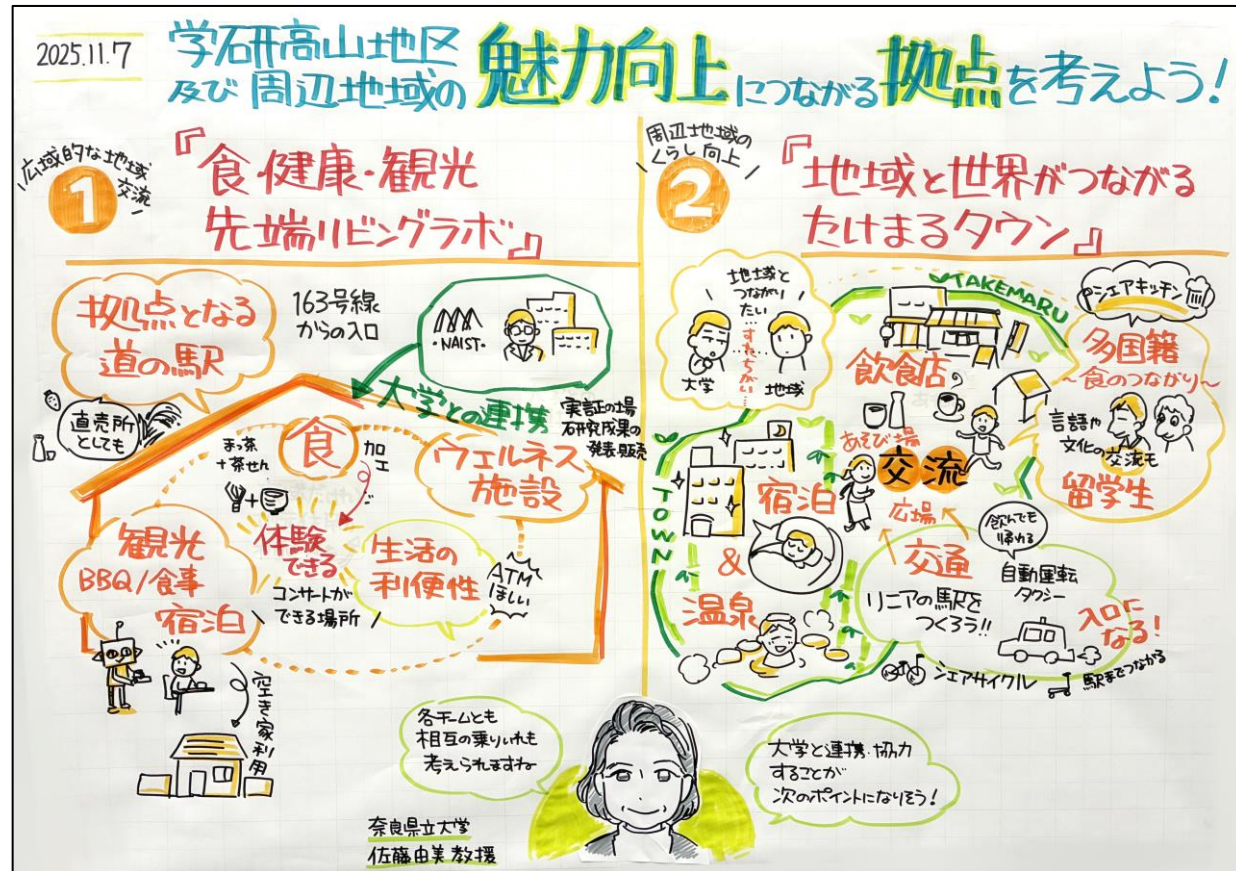 2025.11.7
学研高山地区
及び周辺地域の魅力向上につながる拠点を考えよう!
広域的な地域
交流
1
『食・健康・観光
先端リビングラボ』
拠点となる
道の駅
163号線
からの入口
・NAIST・
大学との連携
実証の場
研究成果の
発表・販売
直売所
としても
まっ茶
+茶せん
+
食
加工
ウェルネス
施設
観光
BBQ/食事
宿泊
体験
できる
コンサートが
できる場所
生活の
利便性
ATM
ほしい
空き家利用
周辺地域の
くらし向上
2
『地域と世界がつながる
たけまるタウン』
地域と
つながり
たい
…すれちがい…
大学
地域
TAKEMARU
TOWN
飲食店
シェアキッチン
多国籍
~食のつながり~
言語や
文化の交流も
留学生
あそび場
交流
広場
宿泊
&
温泉
交通
リニアの駅を
つくろう!!
飲んでも
帰れる
自動運転
タクシー
入口に
なる!
シェアサイクル
駅までつながる
各チームとも
相互の乗り入れも
考えられますね
大学と連携・協力
することが
次のポイントになりそう!
奈良県立大学
佐藤由美教授